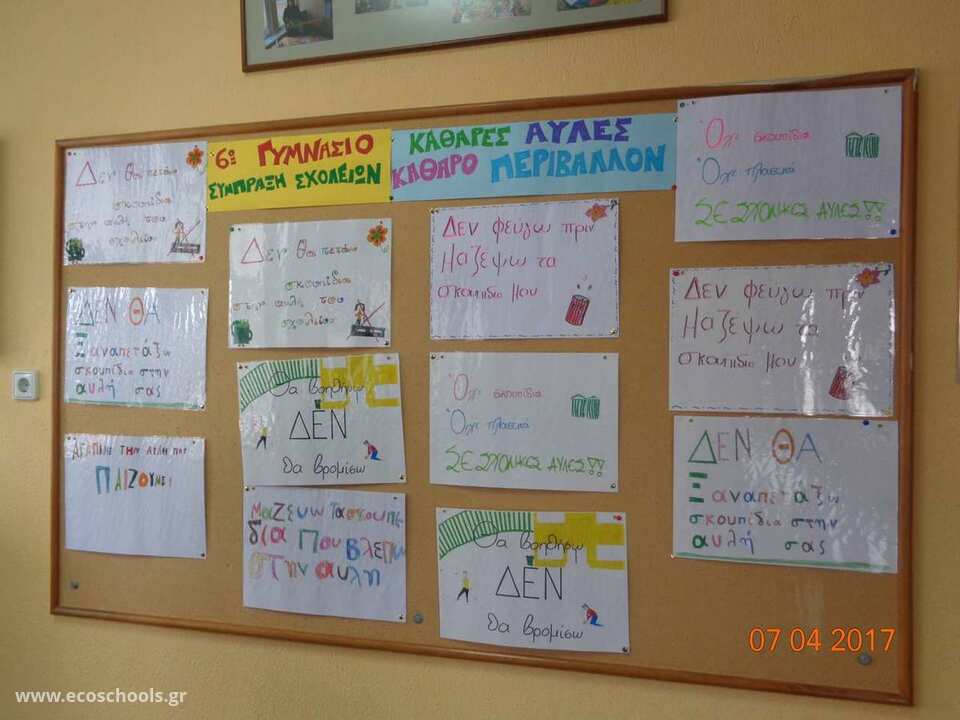 6ο ΓΥΜΝΑΣΙΟ
ΣΥΜΠΡΑΞΗ ΣΧΟΛΕΙΩΝ
ΚΑΘΑΡΕΣ ΑΥΛΕΣ
ΚΑΘΑΡΟ ΠΕΡΙΒΑΛΛΟΝ
Δεν θα πετάω
σκουπίδια
στην αυλή του
σχολείου
ΔΕΝ ΘΑ
Ξαναπετάξω
σκουπίδια στην
αυλή σας
ΑΓΑΠΑΜΕ ΤΗΝ ΑΥΛΗ ΠΟΥ
ΠΑΙΖΟΥΜΕ!
Δεν θα πετάω
σκουπίδια
στην αυλή του
σχολείου
Θα βοηθήσω
ΔΕΝ
θα βρομίσω
Μαζεύω τα σκουπί
δια που βλέπω
στην αυλη
Δεν φεύγω πριν
Μαζέψω τα
σκουπίδια μου
Όχι σκουπίδια
Όχι πλαστικά
ΣΕ ΣΧΟΛΙΚΕΣ ΑΥΛΕΣ!!
Θα βοηθήσω
ΔΕΝ
θα βρομίσω
Όχι σκουπίδια
Όχι πλαστικά
ΣΕ ΣΧΟΛΙΚΕΣ ΑΥΛΕΣ!!
Δεν φεύγω πριν
Μαζέψω τα
σκουπίδια μου
ΔΕΝ ΘΑ
Ξαναπετάξω
σκουπίδια στην
αυλή σας
07 04 2017
www.ecoschools.gr